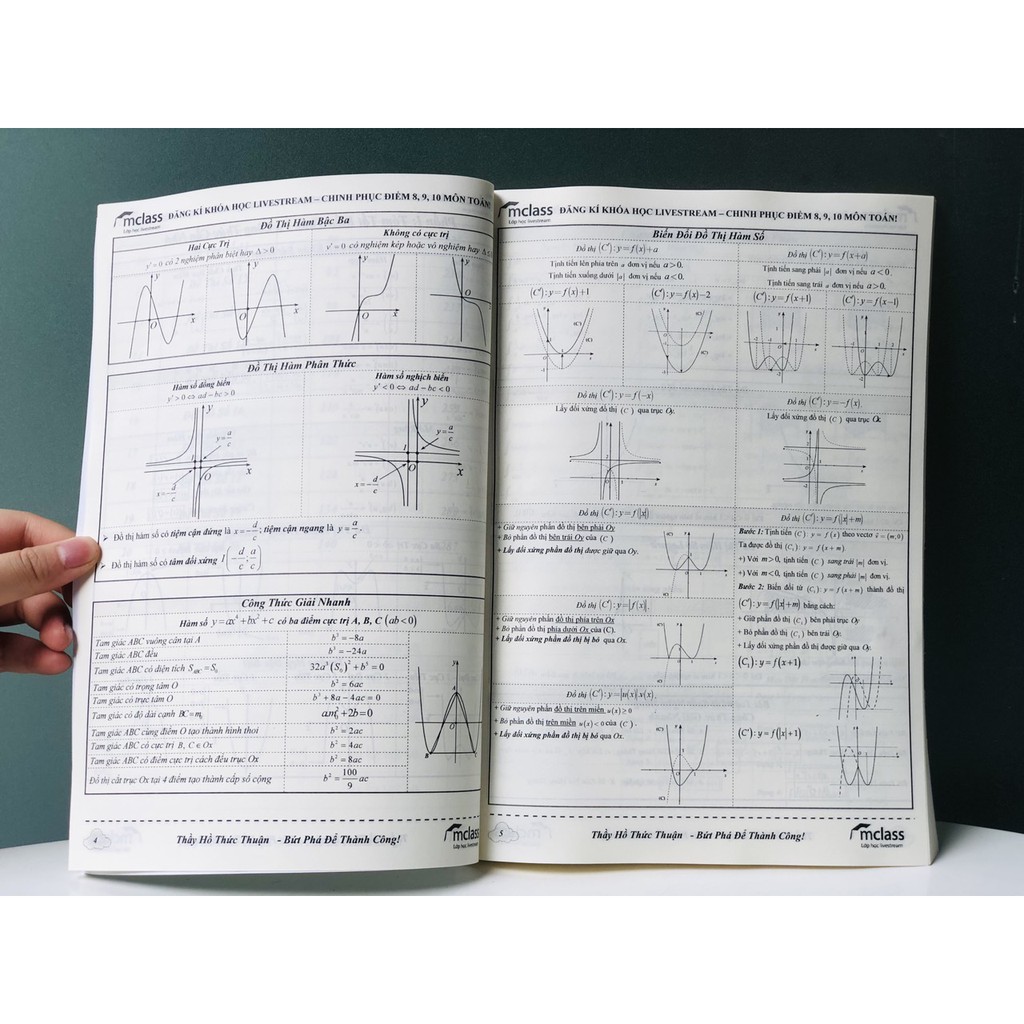 mclass
Lớp học livestream
ĐĂNG KÍ KHÓA HỌC LIVESTREAM – CHINH PHỤC ĐIỂM 8, 9, 10 MÔN TOÁN!
Đồ Thị Hàm Bậc Ba
Hai Cực Trị
y' = 0 có 2 nghiệm phân biệt hay Δ > 0
Không có cực trị
y' = 0 có nghiệm kép hoặc vô nghiệm hay Δ ≤
Đồ Thị Hàm Phân Thức
Hàm số đồng biến
y' > 0 ⇔ ad – bc > 0
Hàm số nghịch biến
y' < 0 ⇔ ad – bc < 0
y = a/c
x = -d/c
y = a/c
x = -d/c
➢ Đồ thị hàm số có tiệm cận đứng là x = -d/c; tiệm cận ngang là y = a/c.
➢ Đồ thị hàm số có tâm đối xứng I(-d/c; a/c)
Công Thức Giải Nhanh
Hàm số y = ax⁴ + bx² + c có ba điểm cực trị A, B, C (ab<0)
Tam giác ABC vuông cân tại A b³ = –8a
Tam giác ABC đều b³ = –24a
Tam giác ABC có diện tích S_ABC = S₀ 32a³(S₀)² + b⁵ = 0
Tam giác có trọng tâm O b² = 6ac
Tam giác có trực tâm O b³ + 8a – 4ac = 0
Tam giác ABC có độ dài cạnh BC = m₀ am₀² + 2b = 0
Tam giác ABC cùng điểm O tạo thành hình thoi b² = 2ac
Tam giác ABC có cực trị B, C ∈ Ox b² = 4ac
Tam giác ABC có điểm cực trị cách đều trục Ox b² = 8ac
Đồ thị cắt trục Ox tại 4 điểm tạo thành cấp số cộng b² = 100/9 ac
4
Thầy Hồ Thức Thuận - Bứt Phá Để Thành Công!
mclass
Lớp học livestream
mclass
Lớp học livestream
ĐĂNG KÍ KHÓA HỌC LIVESTREAM – CHINH PHỤC ĐIỂM 8, 9, 10 MÔN TOÁN!
Biến Đổi Đồ Thị Hàm Số
Đồ thị (C'): y = f(x) + a
Tịnh tiến lên phía trên a đơn vị nếu a > 0.
Tịnh tiến xuống dưới |a| đơn vị nếu a < 0.
Đồ thị (C'): y = f(x + a)
Tịnh tiến sang phải |a| đơn vị nếu a < 0.
Tịnh tiến sang trái a đơn vị nếu a > 0.
(C'): y = f(x) + 1
(C'): y = f(x) – 2
(C'): y = f(x + 1)
(C'): y = f(x – 1)
Đồ thị (C'): y = f(–x)
Lấy đối xứng đồ thị (C) qua trục Oy.
Đồ thị (C'): y = –f(x)
Lấy đối xứng đồ thị (C) qua trục Ox.
Đồ thị (C'): y = f(|x|)
+ Giữ nguyên phần đồ thị bên phải Oy
+ Bỏ phần đồ thị bên trái Oy của (C)
+ Lấy đối xứng phần đồ thị được giữ qua Oy.
Đồ thị (C'): y = |f(x)|.
+ Giữ nguyên phần đồ thị phía trên Ox
+ Bỏ phần đồ thị phía dưới Ox của (C).
+ Lấy đối xứng phần đồ thị bị bỏ qua Ox.
Đồ thị (C'): y = |u(x)|.v(x).
+ Giữ nguyên phần đồ thị trên miền u(x) ≥ 0
+ Bỏ phần đồ thị trên miền u(x) < 0 của (C).
+ Lấy đối xứng phần đồ thị bị bỏ qua Ox.
Đồ thị (C'): y = f(|x| + m)
Bước 1: Tịnh tiến (C): y = f(x) theo vectơ v = (m; 0)
Ta được đồ thị (C₁): y = f(x + m)
+) Với m > 0, tịnh tiến (C) sang trái |m| đơn vị.
+) Với m < 0, tịnh tiến (C) sang phải |m| đơn vị.
Bước 2: Biến đổi từ (C₁): y = f(x + m) thành đồ thị
(C'): y = f(|x| + m) bằng cách:
+ Giữ phần đồ thị (C₁) bên phải trục Oy
+ Bỏ phần đồ thị (C₁) bên trái Oy.
+ Lấy đối xứng phần đồ thị được giữ qua Oy.
(C₁): y = f(x + 1)
(C'): y = f(|x| + 1)
5
Thầy Hồ Thức Thuận - Bứt Phá Để Thành Công!
mclass
Lớp học livestream